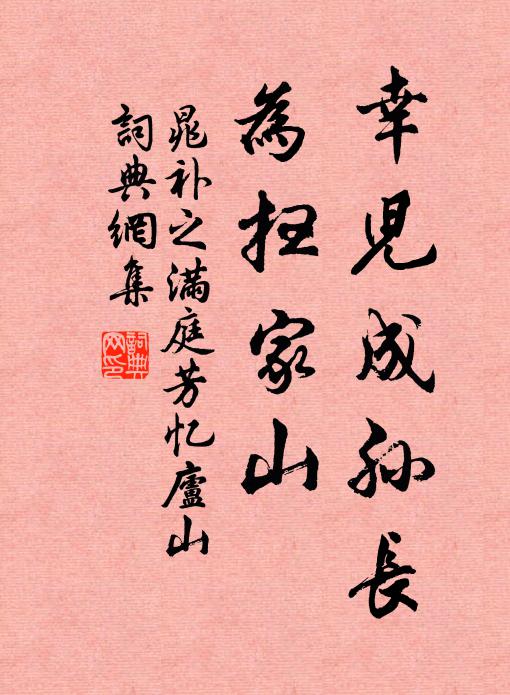 幸児成孙長
為扫家山
晁补之满庭芳忆廬山
詞典網集
詞典网印